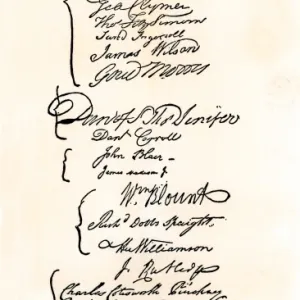 Geo Clymer
Thos FitzSimons
Jared Ingersoll
James Wilson
Gouv Morris
Dan of St Thos Jenifer
Danl Carroll
John Blair –
James Madison Jr
Wm Blount
Richd Dobbs Spaight
Hu Williamson
J. Rutledge
Charles Cotesworth Pinckney